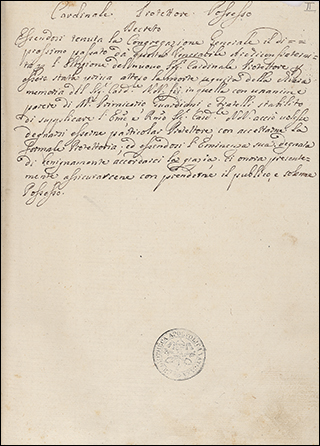 II
Cardinale Protettore Possesso
Decreto
Essendosi tenuta la Congregazione Generale il dì
prossimo passato da questa Venerabile Arciconfraternita
l'Elezione del nuovo Cardinale Protettore
stata prima attesa la morte seguita della chiara
memoria dell' Card.le NN. fù in quella con unanime
parere di M.r Primicerio Guardiani e Fratelli stabilito
di supplicare l'Emo e Rmo Sig. Card.le NN. acciò volesse
degnarsi essere Protettore con accettarne la
formale Protettoria, ed essendosi l'Eminenza sua degnata
di benignamente accordarci la grazia di onora presente-
mente assicurarcene con prenderne il publico, e solenne
Possesso.